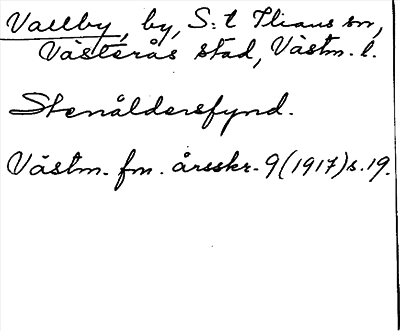 Vallby, by, S:t Ilians sn,
Västerås stad, Västm. l.
Stenåldersfynd.
Västm. fm. årsskr. 9(1917)s.19.